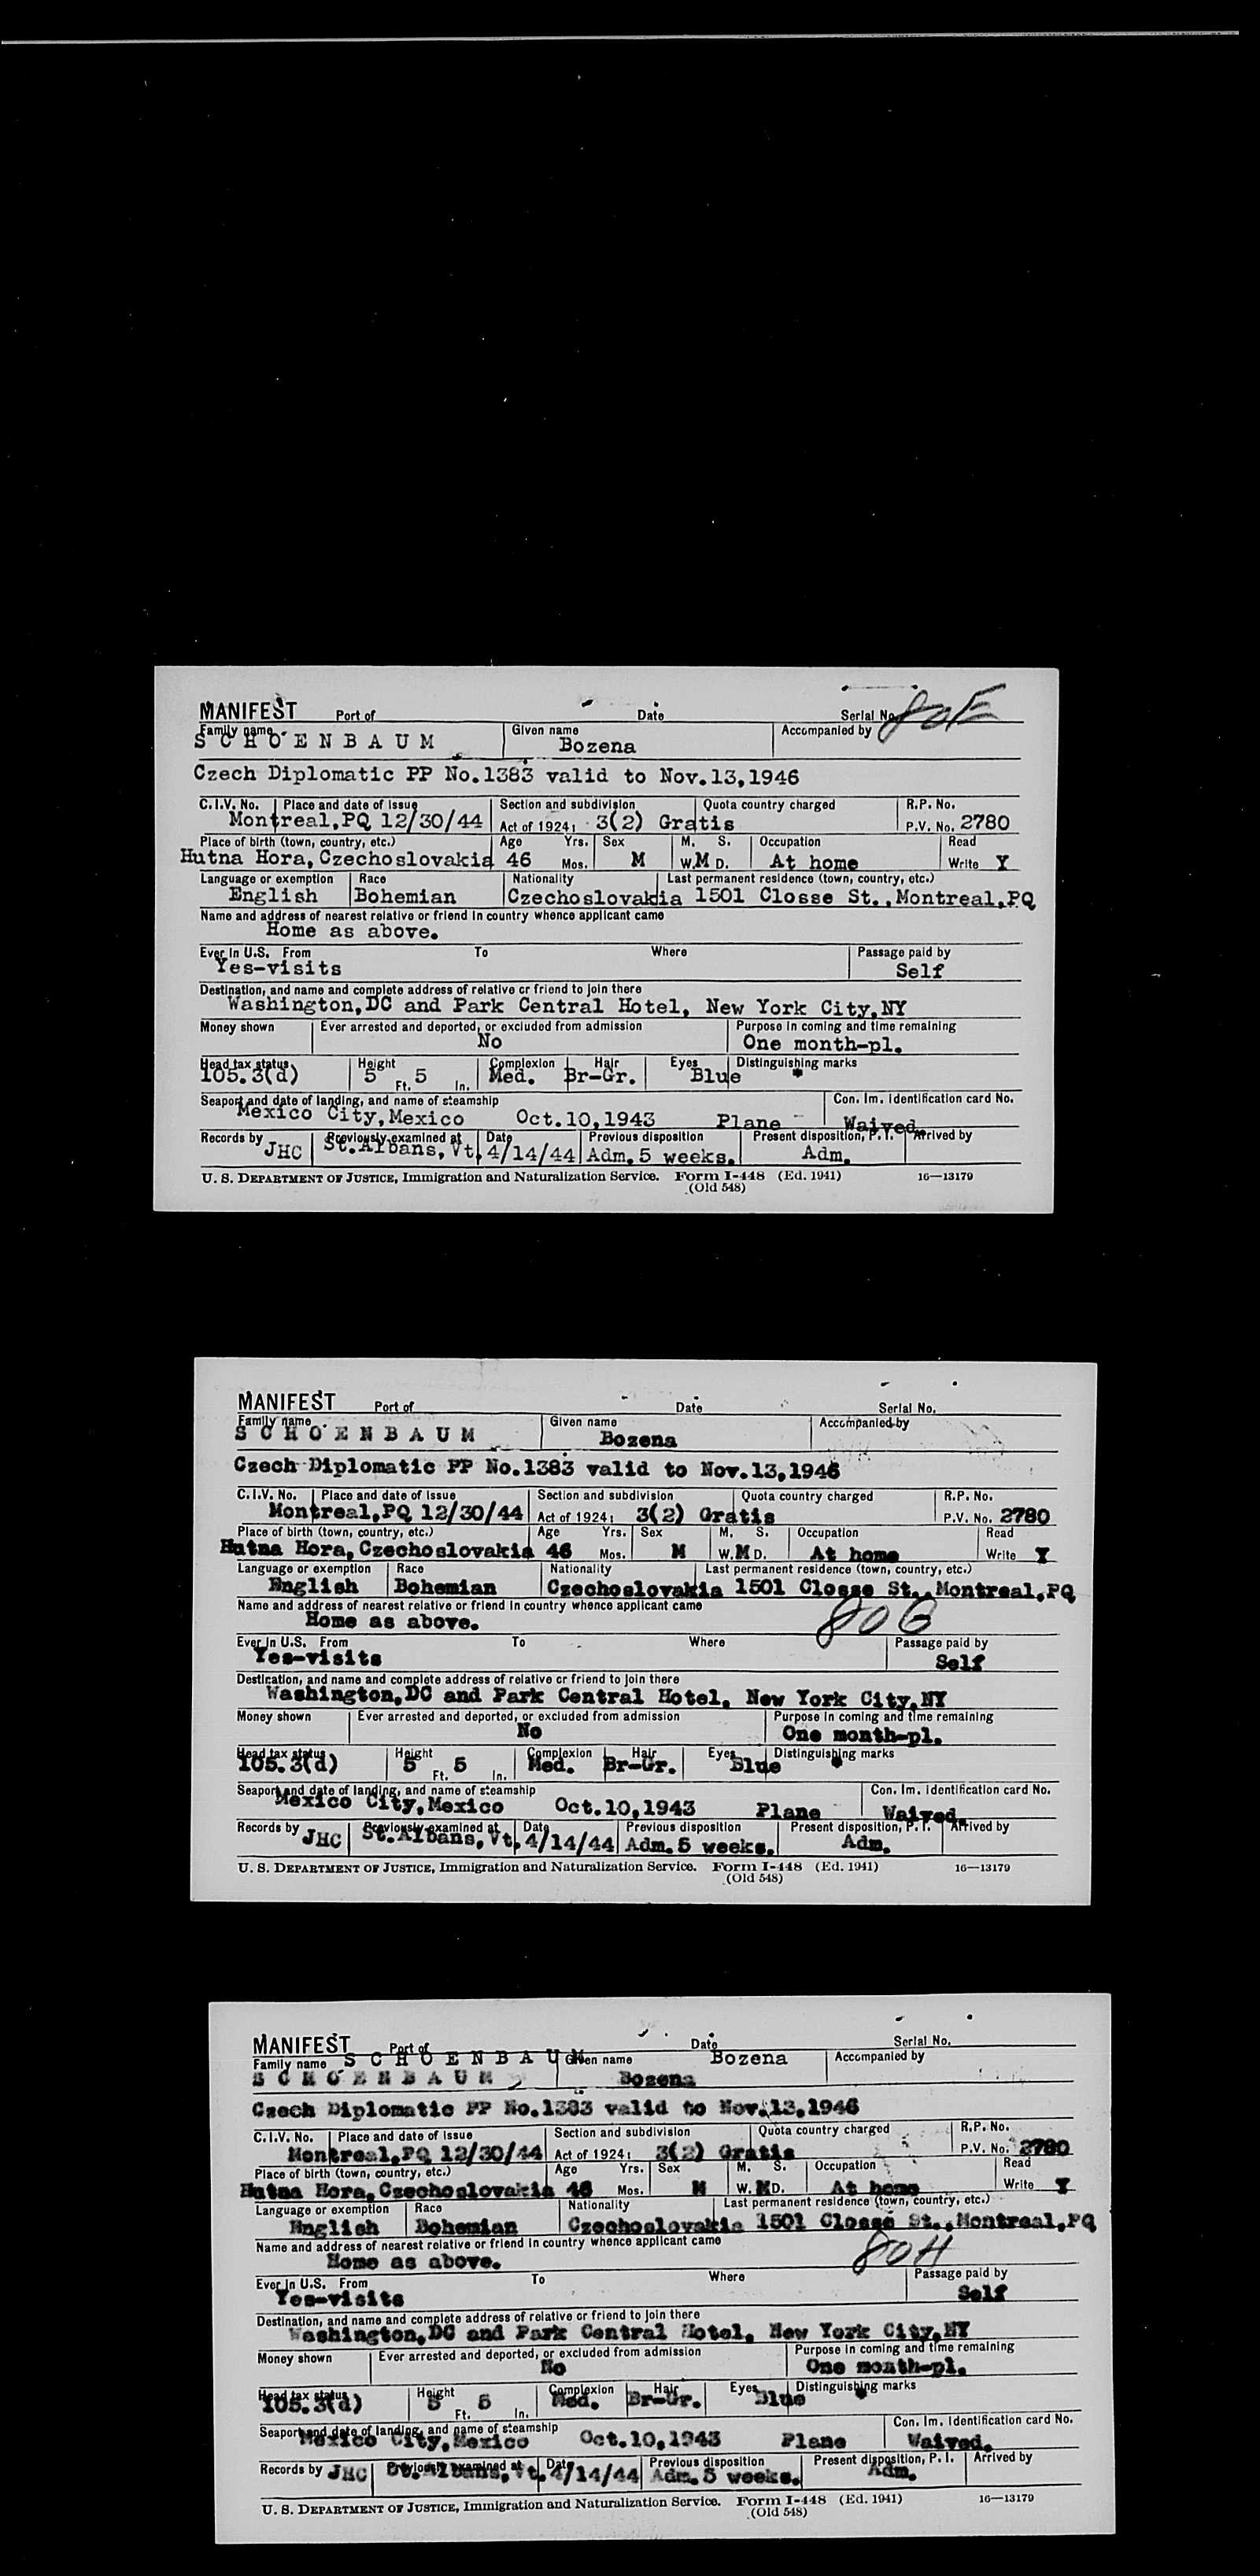 MANIFEST Port of Date Serial No. 80E
Family name Given name Accompanied by
SCHOENBAUM Bozena
Czech Diplomatic PP No.1383 valid to Nov.13,1946
C.I.V. No. Place and date of issue Section and subdivision Quota country charged R.P. No.
Montreal,PQ 12/30/44 Act of 1924: 3(2) Gratis P.V. No. 2780
Place of birth (town, country, etc.) Age Yrs. Sex M. S. Occupation Read
Hutna Hora, Czechoslovakia 46 Mos. M W.M D. At home Write Y
Language or exemption Race Nationality Last permanent residence (town, country, etc.)
English Bohemian Czechoslovakia 1501 Closse St., Montreal,PQ
Name and address of nearest relative or friend in country whence applicant came
Home as above.
Ever in U.S. From To Where Passage paid by
Yes-visits Self
Destination, and name and complete address of relative or friend to join there
Washington,DC and Park Central Hotel, New York City,NY
Money shown Ever arrested and deported, or excluded from admission Purpose in coming and time remaining
No One month-pl.
Head tax status Height Complexion Hair Eyes Distinguishing marks
105.3(d) 5 Ft. 5 In. Med. Br-Gr. Blue
Seaport and date of landing, and name of steamship Con. Im. Identification card No.
Mexico City,Mexico Oct.10,1943 Plane Waived.
Records by Previously examined at Date Previous disposition Present disposition, P. I. Arrived by
JHC St.Albans,Vt. 4/14/44 Adm.5 weeks. Adm.
U. S. DEPARTMENT OF JUSTICE, Immigration and Naturalization Service. Form I-448 (Ed. 1941) 16—13179
(Old 548)
MANIFEST Port of Date Serial No.
Family name Given name Accompanied by
SCHOENBAUM Bozena
Czech Diplomatic PP No.1383 valid to Nov.13,1946
C.I.V. No. Place and date of issue Section and subdivision Quota country charged R.P. No.
Montreal,PQ 12/30/44 Act of 1924: 3(2) Gratis P.V. No. 2780
Place of birth (town, country, etc.) Age Yrs. Sex M. S. Occupation Read
Hutna Hora, Czechoslovakia 46 Mos. M W.M D. At home Write Y
Language or exemption Race Nationality Last permanent residence (town, country, etc.)
English Bohemian Czechoslovakia 1501 Closse St., Montreal,PQ
Name and address of nearest relative or friend in country whence applicant came 80G
Home as above.
Ever in U.S. From To Where Passage paid by
Yes-visits Self
Destination, and name and complete address of relative or friend to join there
Washington,DC and Park Central Hotel, New York City,NY
Money shown Ever arrested and deported, or excluded from admission Purpose in coming and time remaining
No One month-pl.
Head tax status Height Complexion Hair Eyes Distinguishing marks
105.3(d) 5 Ft. 5 In. Med. Br-Gr. Blue
Seaport and date of landing, and name of steamship Con. Im. Identification card No.
Mexico City,Mexico Oct.10,1943 Plane Waived.
Records by Previously examined at Date Previous disposition Present disposition, P. I. Arrived by
JHC St.Albans,Vt. 4/14/44 Adm.5 weeks. Adm.
U. S. DEPARTMENT OF JUSTICE, Immigration and Naturalization Service. Form I-448 (Ed. 1941) 16—13179
(Old 548)
MANIFEST Port of Date Serial No.
Family name SCHOENBAUM Given name Bozena Accompanied by
SCHOENBAUM Bozena
Czech Diplomatic PP No.1383 valid to Nov.13,1946
C.I.V. No. Place and date of issue Section and subdivision Quota country charged R.P. No.
Montreal,PQ 12/30/44 Act of 1924: 3(2) Gratis P.V. No. 2780
Place of birth (town, country, etc.) Age Yrs. Sex M. S. Occupation Read
Hutna Hora, Czechoslovakia 46 Mos. M W.M D. At home Write Y
Language or exemption Race Nationality Last permanent residence (town, country, etc.)
English Bohemian Czechoslovakia 1501 Closse St., Montreal,PQ
Name and address of nearest relative or friend in country whence applicant came 80H
Home as above.
Ever in U.S. From To Where Passage paid by
Yes-visits Self
Destination, and name and complete address of relative or friend to join there
Washington,DC and Park Central Hotel, New York City,NY
Money shown Ever arrested and deported, or excluded from admission Purpose in coming and time remaining
No One month-pl.
Head tax status Height Complexion Hair Eyes Distinguishing marks
105.3(d) 5 Ft. 5 In. Med. Br-Gr. Blue
Seaport and date of landing, and name of steamship Con. Im. Identification card No.
Mexico City,Mexico Oct.10,1943 Plane Waived.
Records by Previously examined at Date Previous disposition Present disposition, P. I. Arrived by
JHC St.Albans,Vt. 4/14/44 Adm.5 weeks. Adm.
U. S. DEPARTMENT OF JUSTICE, Immigration and Naturalization Service. Form I-448 (Ed. 1941) 16—13179
(Old 548)